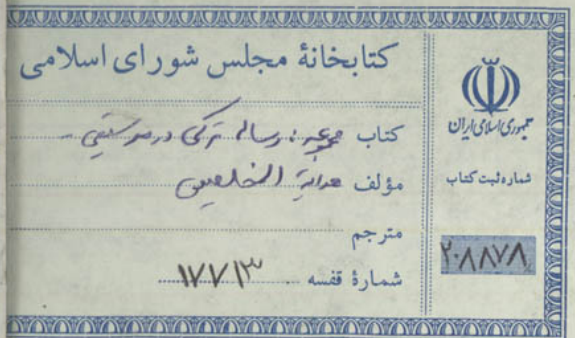 کتابخانهٔ مجلس شورای اسلامی
کتاب مجموعه: رساله ترکی در موسیقی -
مؤلف هدایة المخلصین
مترجم
شمارهٔ قفسه ۱۷۷۱۳
جمهوری اسلامی ایران
شماره ثبت کتاب
۲۰۸۸۷۸